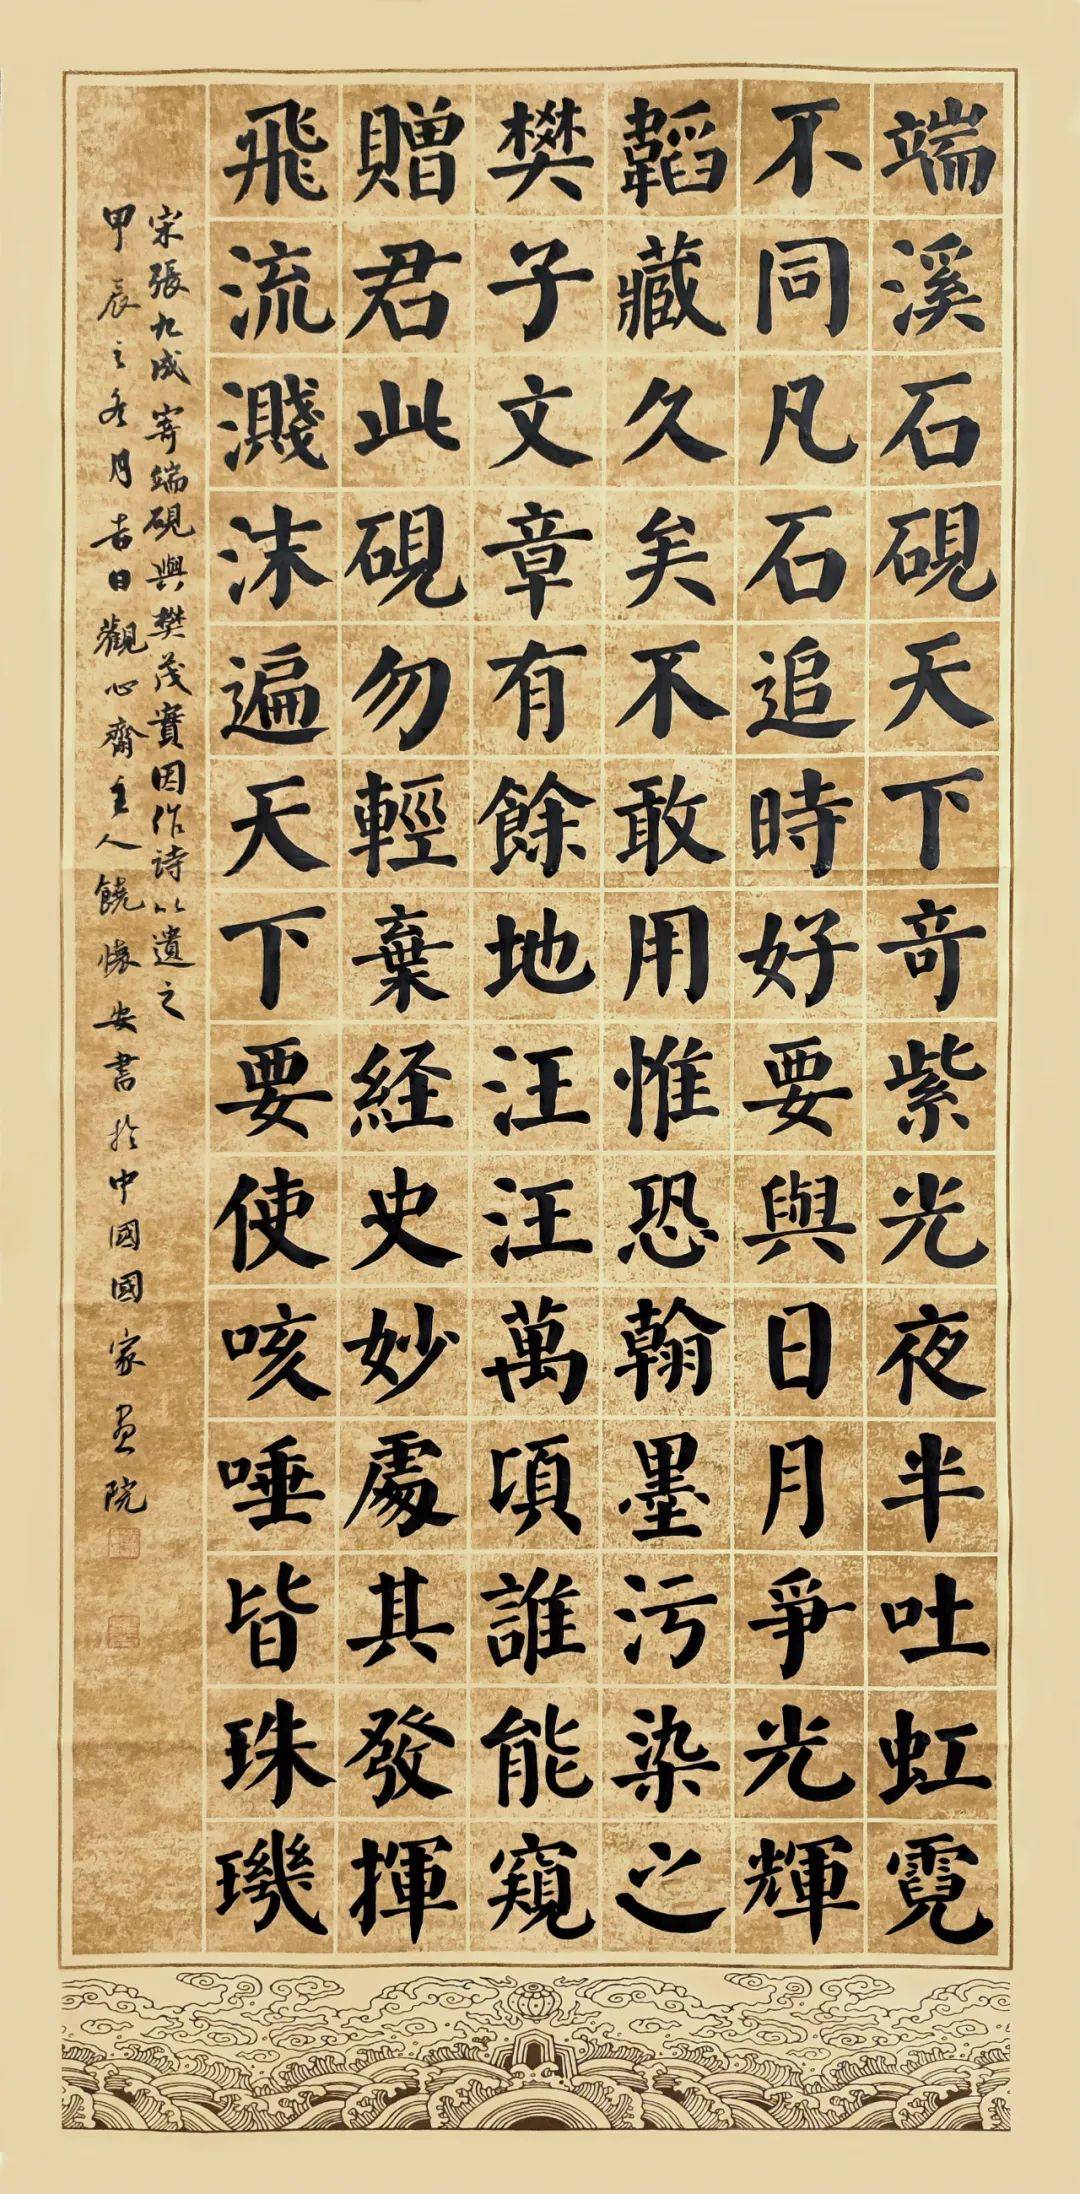 端溪石硯天下奇紫光夜半吐虹霓
不同凡石追時好要與日月爭光輝
韜藏久矣不敢用惟恐翰墨污染之
樊子文章有餘地汪汪萬頃誰能窺
贈君此硯勿輕棄経史妙處其發揮
飛流濺沫遍天下要使咳唾皆珠璣
宋張九成寄端硯與樊茂實因作詩以遺之
甲辰之冬月吉日觀心齋主人饒懷安書於中國國家畫院